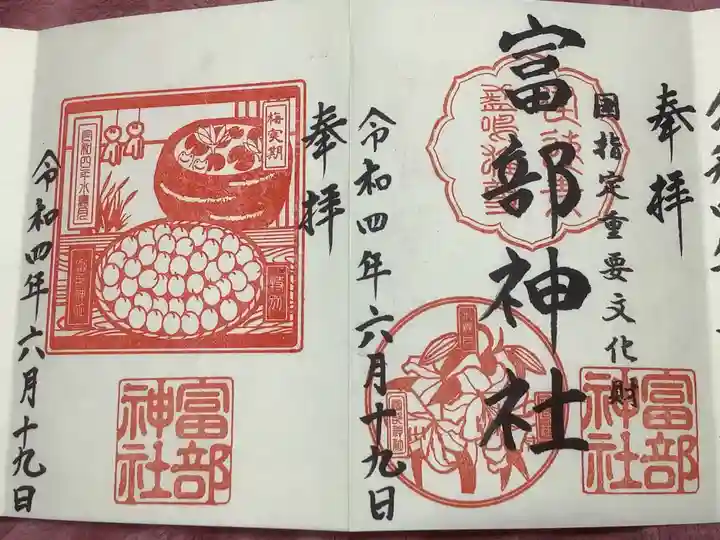 奉拝
国指定重要文化財
富部神社
令和四年六月十九日
富部神社
水無月
奉拝
梅実期
令和四年水無月
特別
富部神社
令和四年六月十九日
富部神社